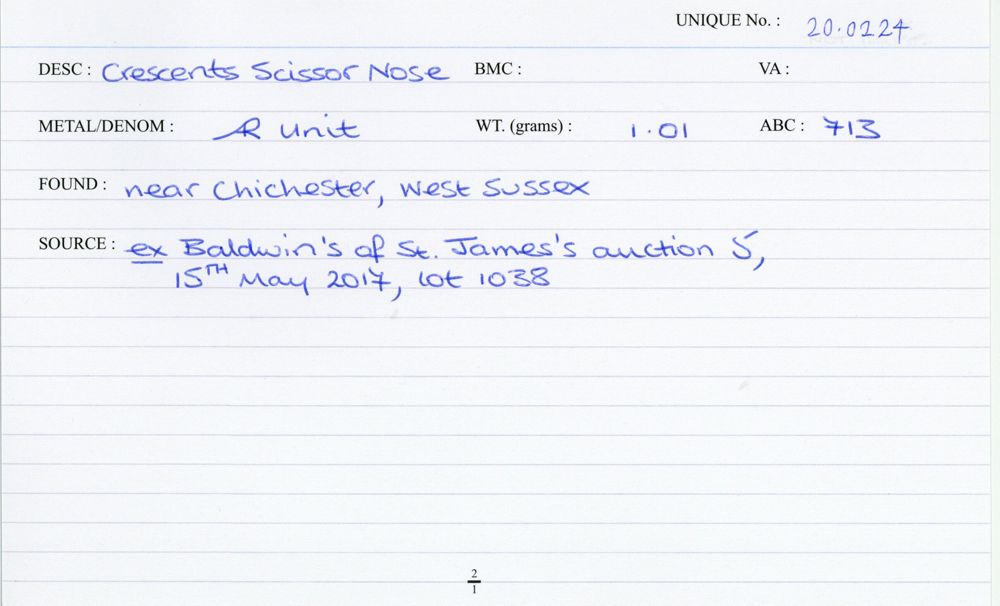 UNIQUE No. : 20.0224
DESC : Crescents Scissor Nose BMC : VA :
METAL/DENOM : AR unit WT. (grams) : 1.01 ABC : 713
FOUND : near Chichester, West Sussex
SOURCE : ex Baldwin's of St. James's auction 5,
15TH May 2017, lot 1038
2
1